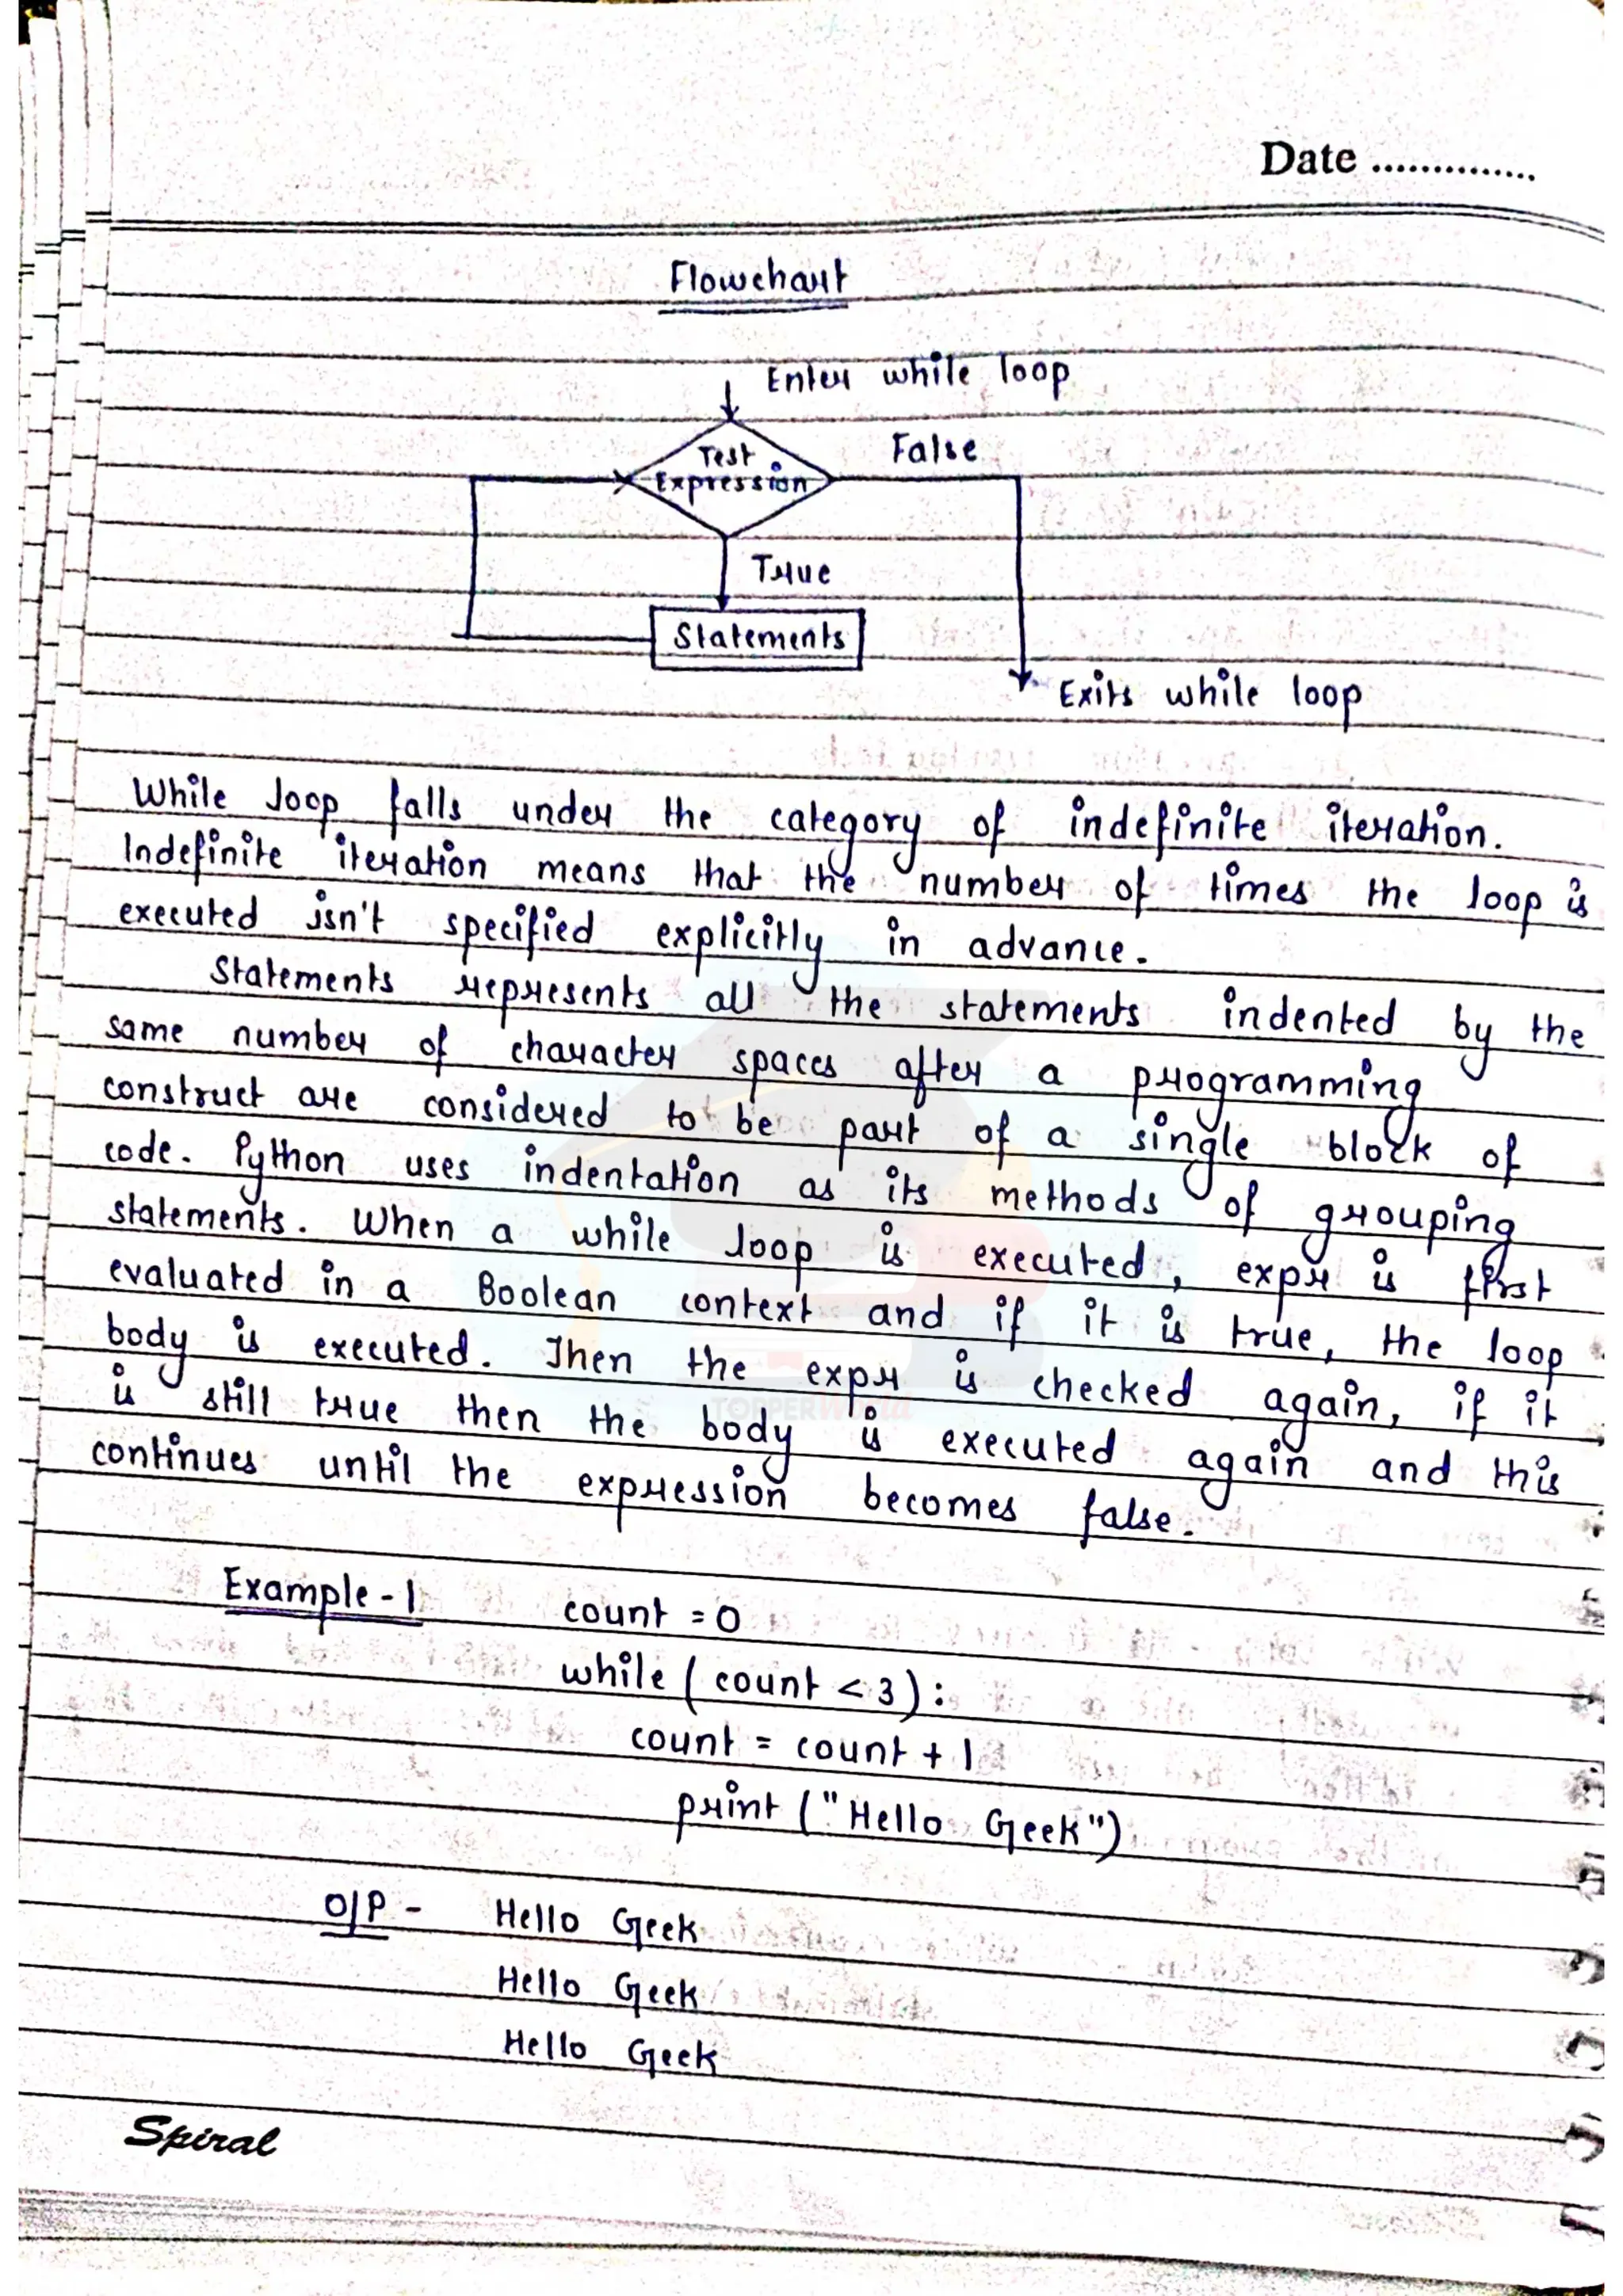 Date ..............
Flowchart
Enter while loop
Test
Expression
False
True
Statements
Exits while loop
While loop falls under the category of indefinite iteration.
Indefinite iteration means that the number of times the loop is
executed isn't specified explicitly in advance.
Statements represents all the statements indented by the
same number of character spaces after a programming
construct are considered to be part of a single block of
code. Python uses indentation as its methods of grouping
statements. When a while loop is executed, expr is first
evaluated in a Boolean context and if it is true, the loop
body is executed. Then the expr is checked again, if it
is still true then the body is executed again and this
continues until the expression becomes false.
TOPPERWorld
Example-1 count = 0
while (count < 3):
count = count + 1
print ("Hello Geek")
O/P - Hello Geek
Hello Geek
Hello Geek
Spiral